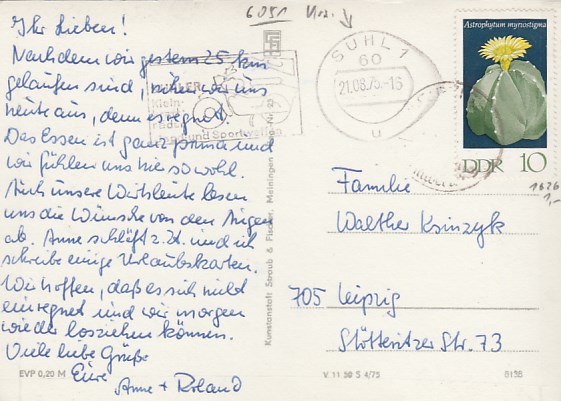 6051
Ihr Lieben!
Nachdem wir gestern 25 km
gelaufen sind, ruhen wir uns
heute aus, denn es regnet.
Das Essen ist ganz prima und
wir fühlen uns hier so wohl.
Auch unsere Wirtsleute lesen
uns die Wünsche von den Augen
ab. Anne schläft z. Zt. und ich
schreibe einige Urlaubskarten.
Wir hoffen, daß es sich nicht
einregnet und wir morgen
wieder losziehen können.
Viele liebe Grüße
Eure
Anne + Roland
EVP 0,20 M
Klein-
und Sportwaffen
SUHL 1
60
21.08.75-16
u
Astrophytum myriostigma
DDR 10
1626
1,-
Kunstanstalt Straub & Fischer, Meiningen
Familie
Walther Ksinzyk
705 Leipzig
Stötteritzer Str. 73
V 11 50 S 4/75
8138